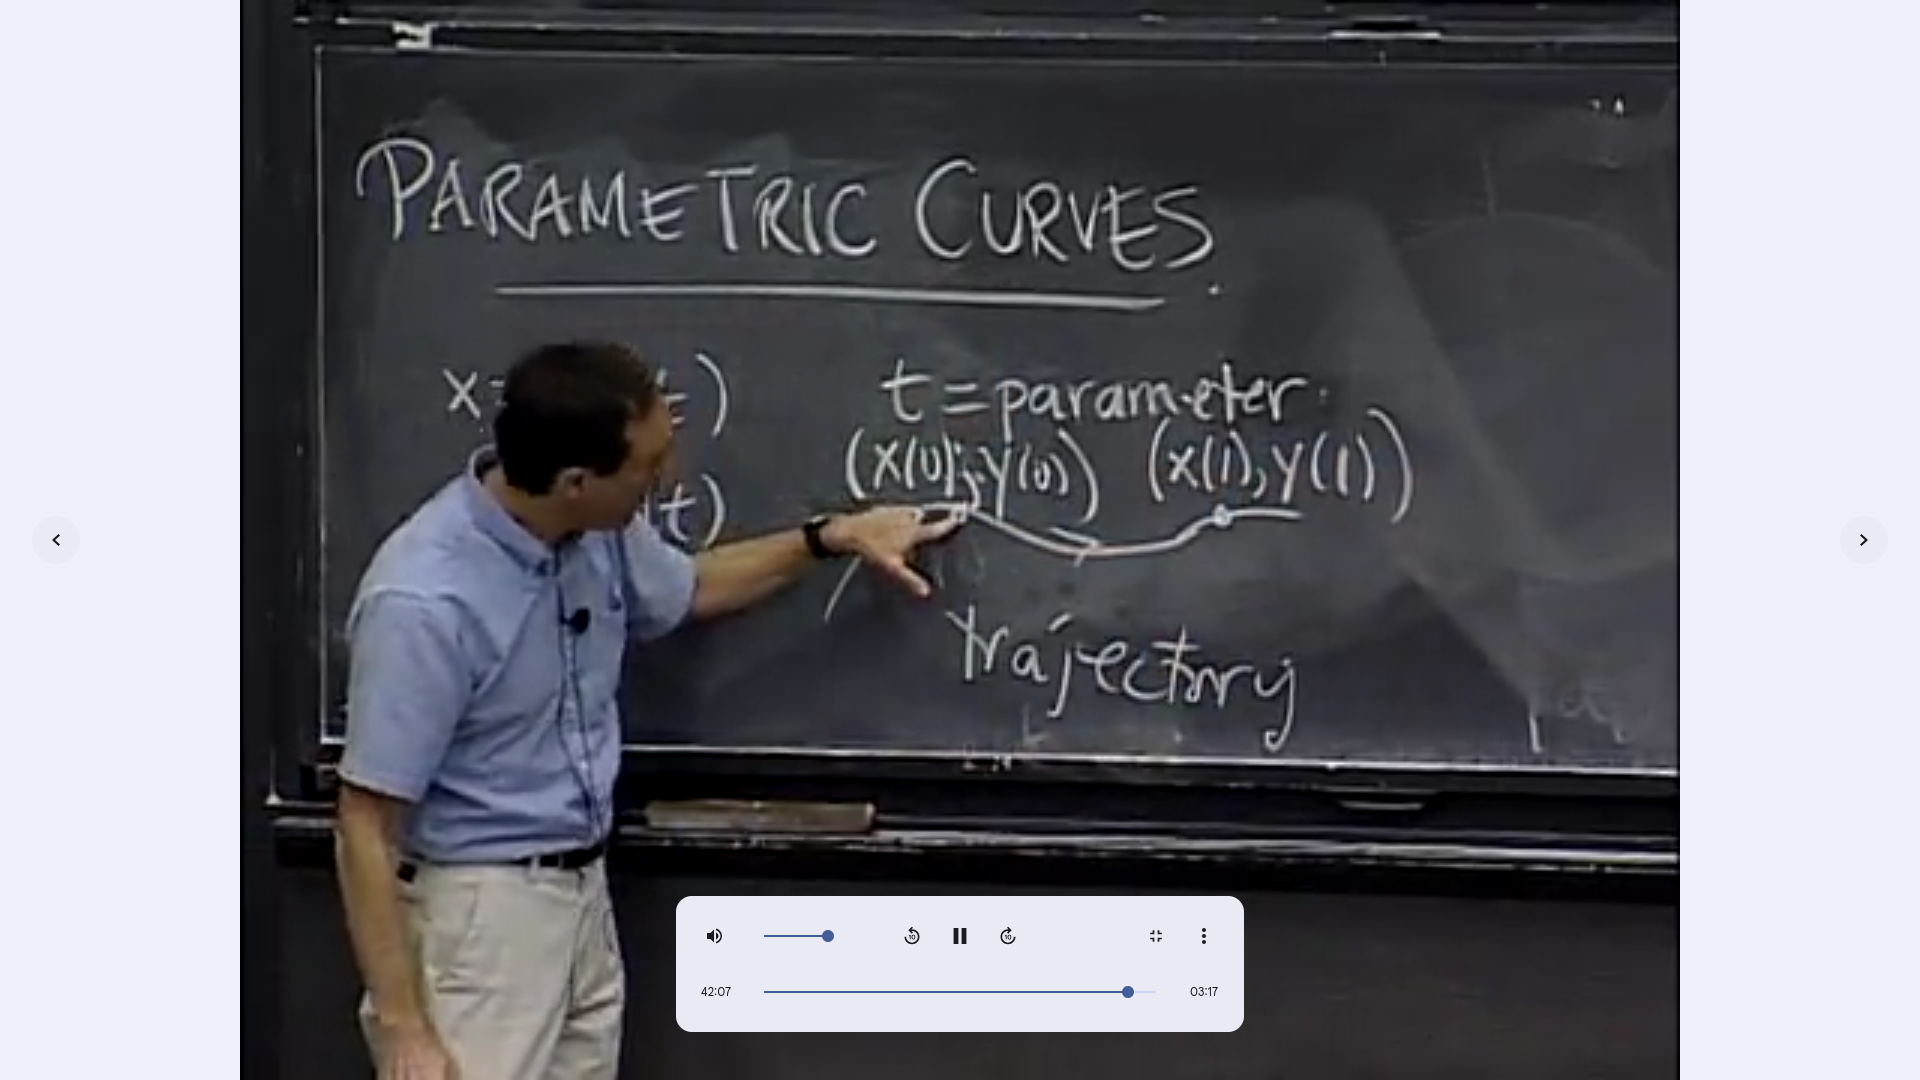 PARAMETRIC CURVES.
x= t) t = parameter
(x(0), y(0)) (x(1), y(1))
(t)
trajectory
10 10
42:07 03:17